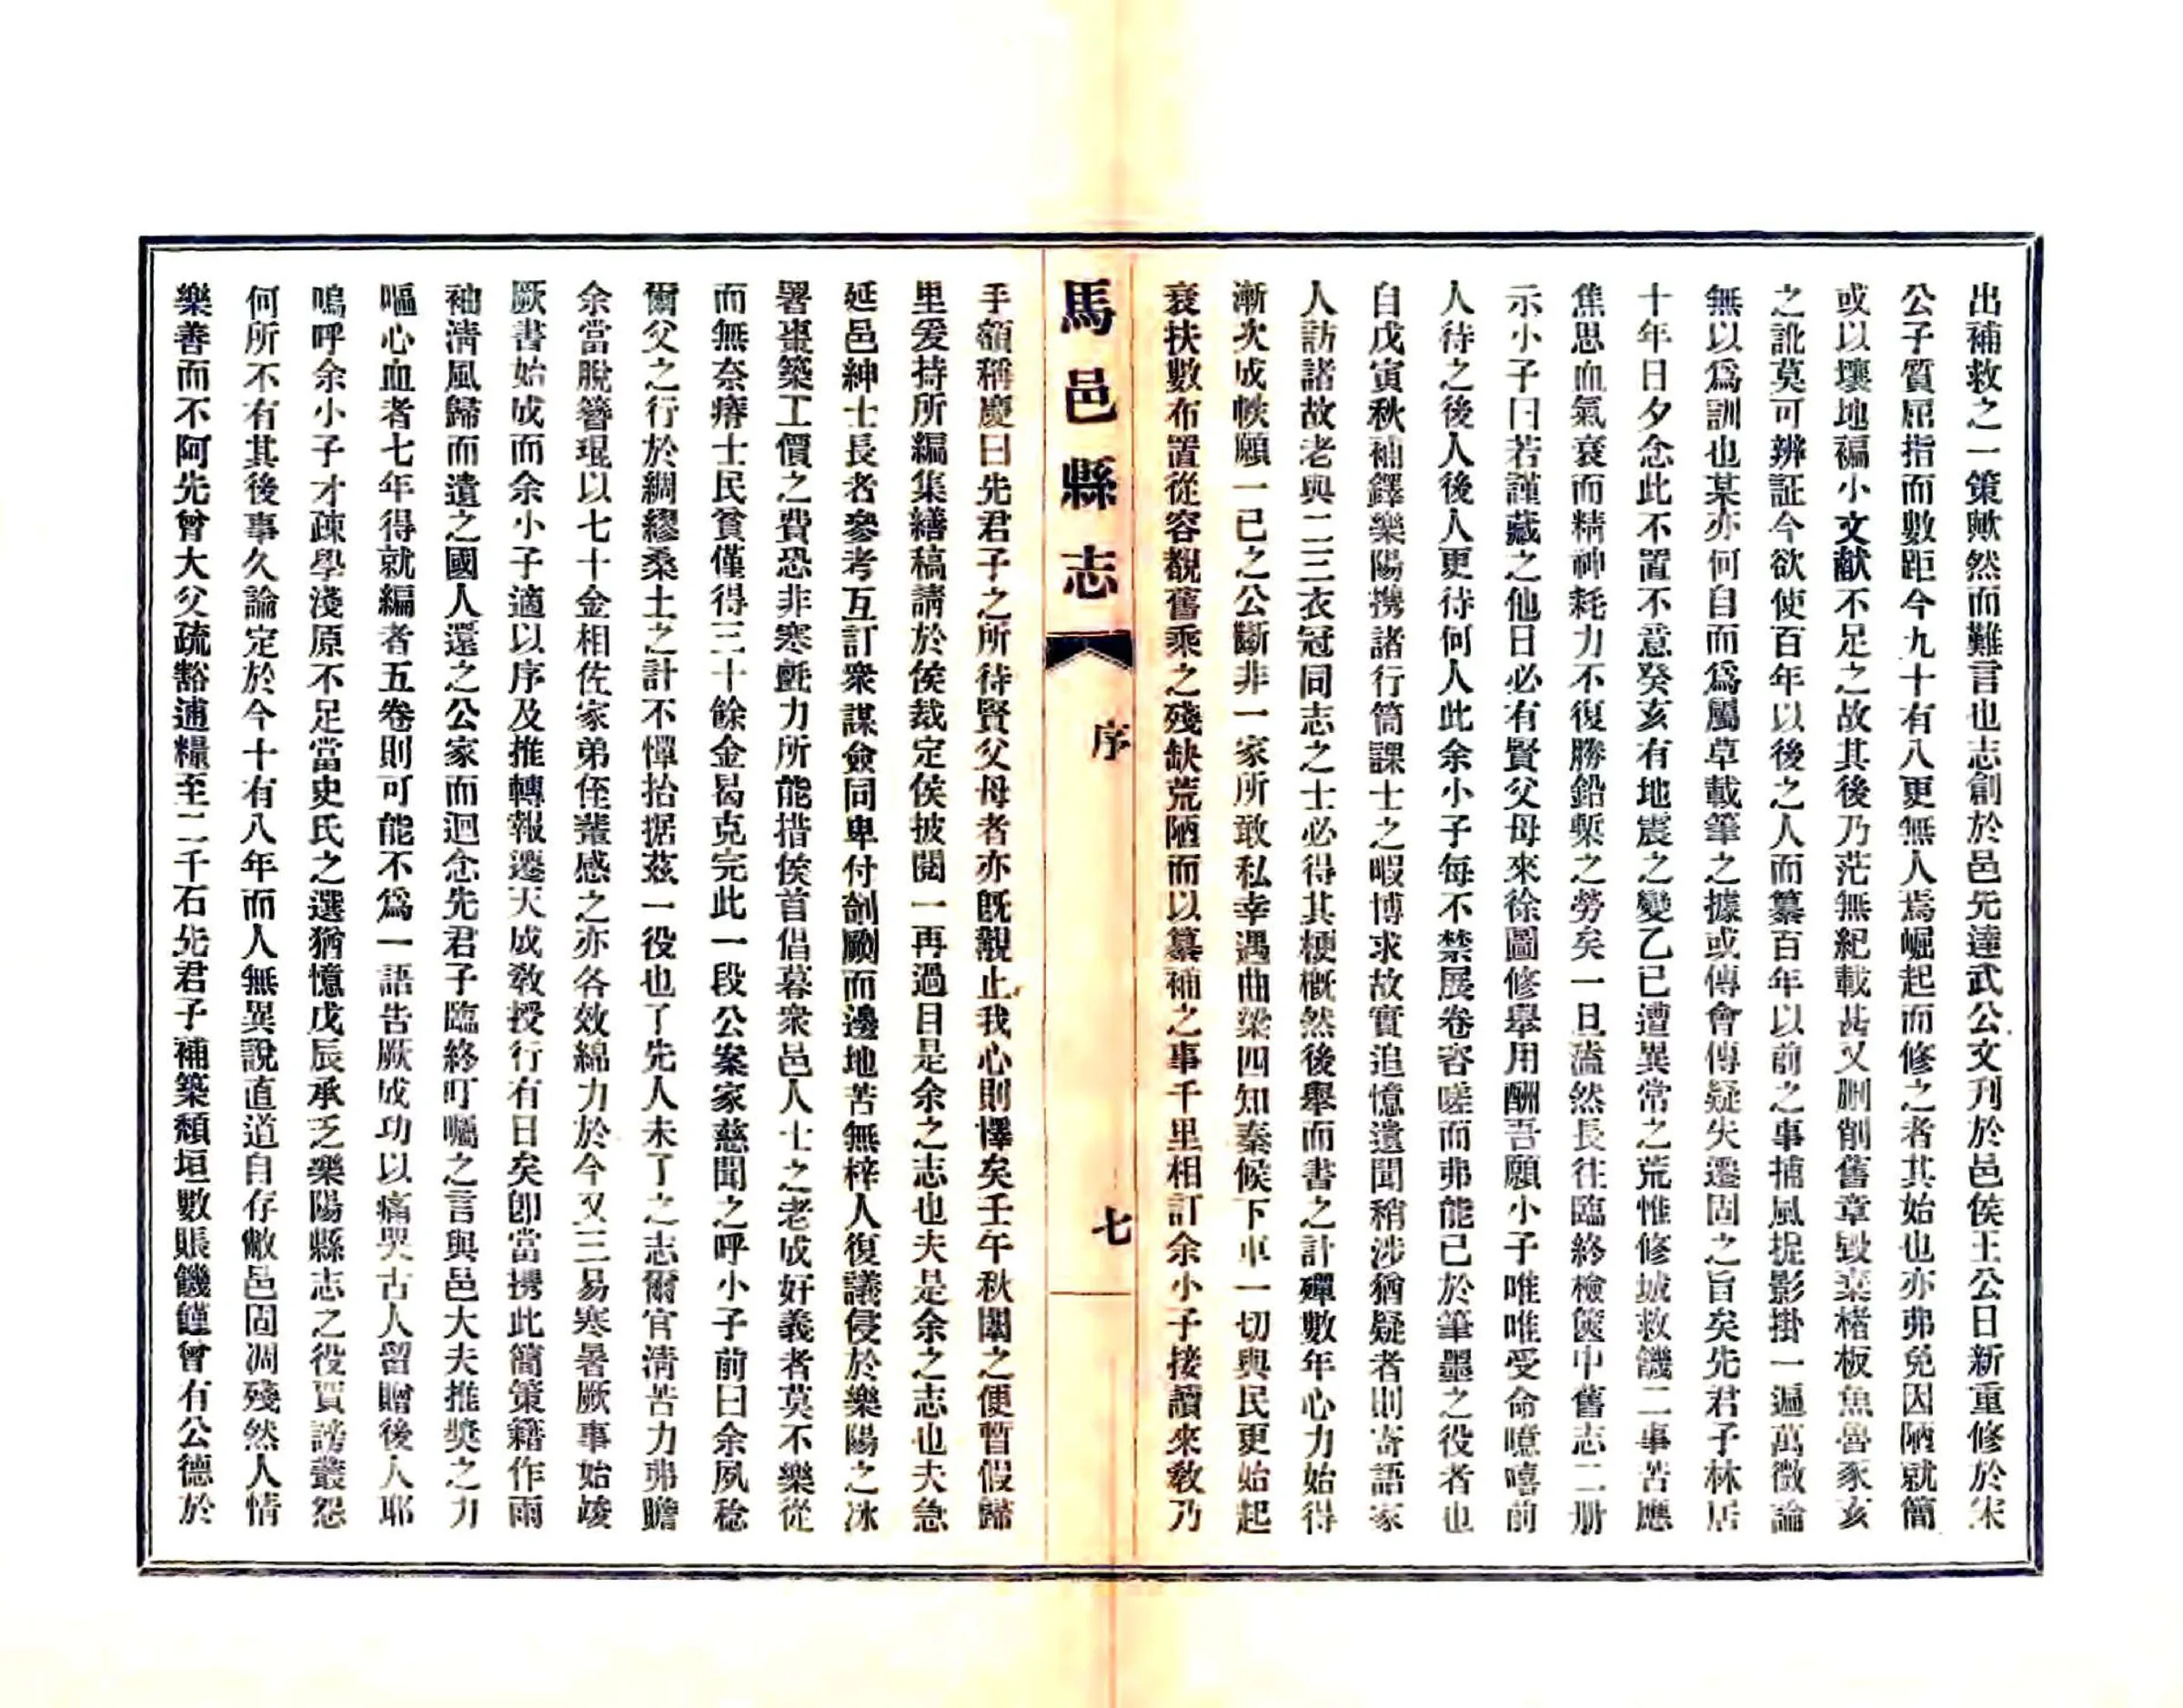 出補救之一策歟然而難言也志創於邑先達武公文刋於邑侯王公日新重修於宋
公子質屈指而數距今九十有八更無人焉崛起而修之者其始也亦弗免因陋就簡
或以壤地褊小文献不足之故其後乃茫無紀載甚又删削舊章毀棄楮板魚魯豕亥
之訛莫可辨証今欲使百年以後之人而纂百年以前之事捕風捉影掛一遍萬徵論
無以爲訓也某亦何自而爲屬草載筆之據或傅會傳疑失遷固之旨矣先君子林居
十年日夕念此不置不意癸亥有地震之變乙已遭異常之荒惟修城救饑二事苦應
焦思血氣衰而精神耗力不復勝鉛槧之勞矣一旦溘然長往臨終檢篋中舊志二册
示小子曰若謹藏之他日必有賢父母來徐圖修舉用酬吾願小子唯唯受命噫嘻前
人待之後人後人更待何人此余小子每不禁展卷容嗟而弗能已於筆墨之役者也
自戊寅秋袖鐸樂陽携諸行筒課士之暇博求故實追憶遺聞稍涉猶疑者則寄語家
人訪諸故老與二三衣冠同志之士必得其梗槪然後舉而書之計殫數年心力始得
漸次成帙願一已之公斷非一家所敢私幸遇曲梁四知秦候下車一切與民更始起
衰扶數布置從容覩舊乘之殘缺荒陋而以纂補之事千里相訂余小子接讀來敎乃
馬邑縣志
序
七
手額稱慶曰先君子之所待賢父母者亦旣覯止我心則懌矣壬午秋闈之便暫假歸
里爰持所編集繕稿請於侯裁定侯披閱一再過目是余之志也夫是余之志也夫急
延邑紳士長者參考互訂衆謀僉同卑付剞劂而邊地苦無梓人復議侵於樂陽之冰
署棗築工價之費恐非寒氈力所能措侯首倡暮衆邑人士之老成好義者莫不樂從
而無奈瘠士民貧僅得三十餘金曷克完此一段公案家慈聞之呼小子前曰余夙稔
爾父之行於綢繆桑土之計不憚拮据茲一役也了先人未了之志爾官淸苦力弗贍
余當脫簪珥以七十金相佐家弟侄輩感之亦各效綿力於今又三易寒暑厥事始竣
厥書始成而余小子適以序及推轉報遷天成敎授行有日矣卽當携此簡策籍作雨
袖淸風歸而遺之國人還之公家而迴念先君子臨終叮囑之言與邑大夫推奬之力
嘔心血者七年得就編者五卷則可能不爲一語告厥成功以痛哭古人留贈後人耶
嗚呼余小子才疎學淺原不足當史氏之選猶憶戊辰承乏樂陽縣志之役買謗叢怨
何所不有其後事久論定於今十有八年而人無異說直道自存敝邑固凋殘然人情
樂善而不阿先曾大父疏豁逋糧至二千石先君子補築頹垣數賬饑饉曾有公德於